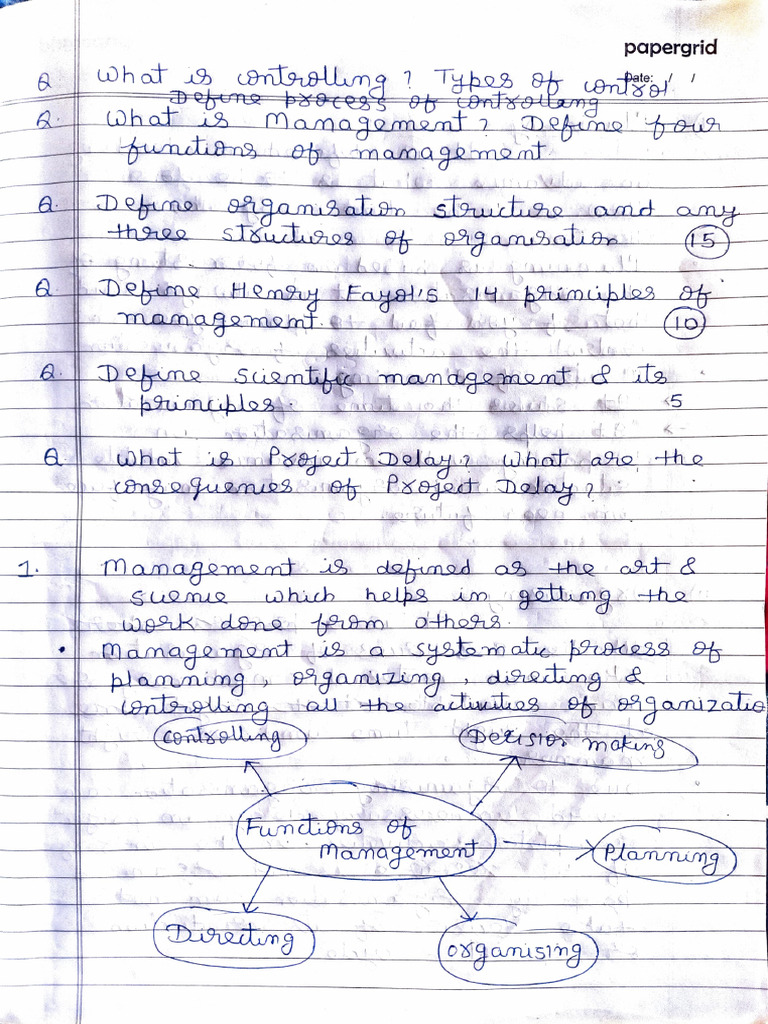 papergrid
Date: / /
Q What is controlling? Types of control
Define process of controllang
Q. What is Management? Define four
functions of management
Q. Define organisation structure and any
three structures of organisation 15
Q. Define Henry Fayol's 14 principles of
management. 10
Q. Define scientific management & its
principles. 5
Q What is Project Delay? What are the
consequencies of Project Delay?
1. Management is defined as the art &
science which helps in getting the
work done from others.
• Management is a systematic process of
planning, organizing, directing &
controlling all the activities of organizatio
controlling Decision making
Functions of
Management
Planning
Directing organising